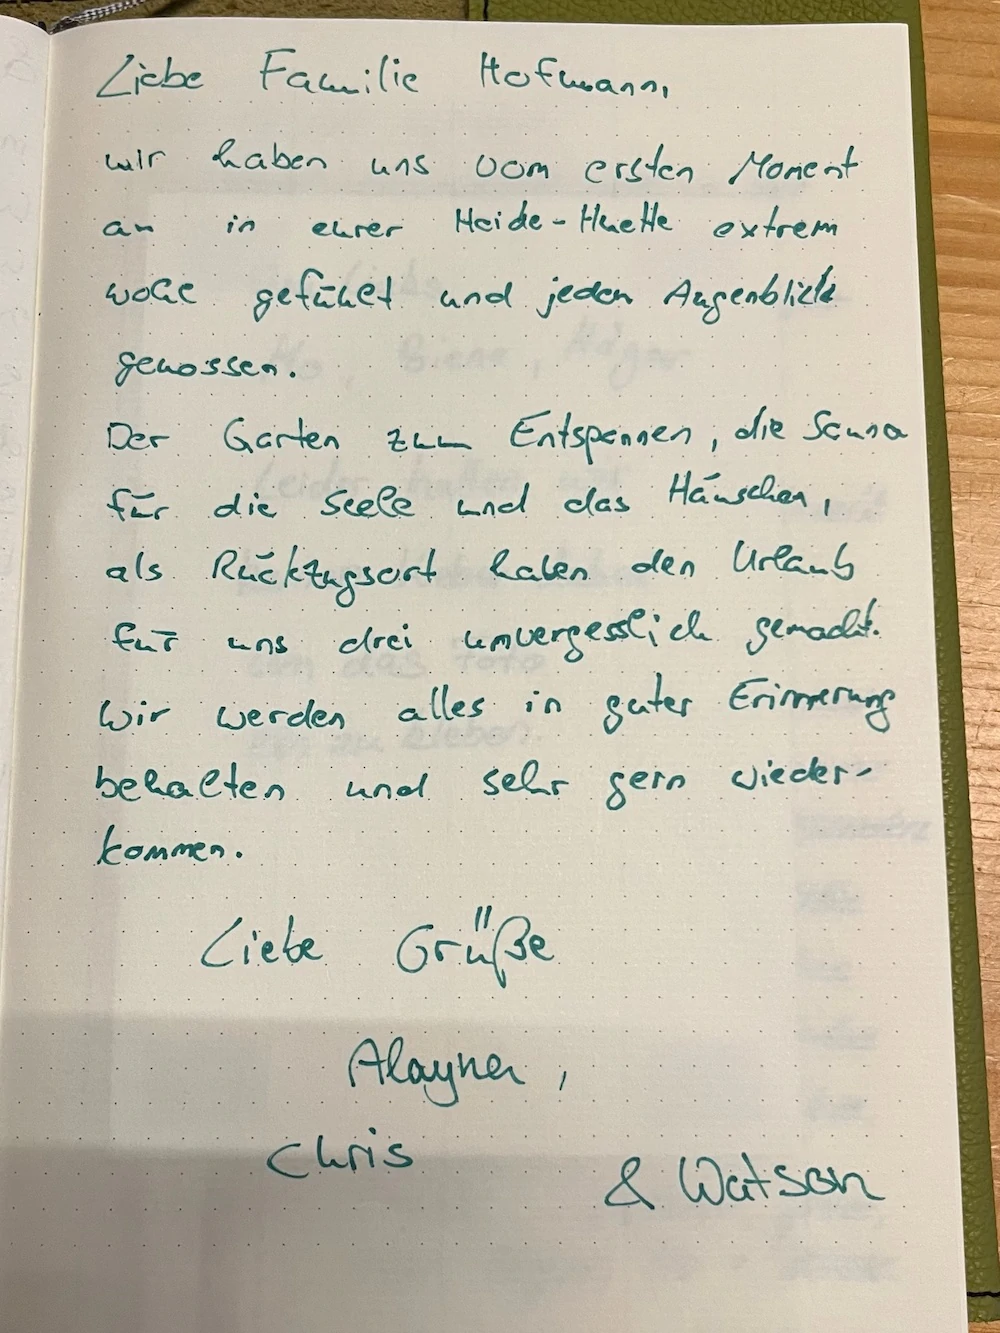 Liebe Familie Hofmann,
wir haben uns vom ersten Moment
an in eurer Heide-Huette extrem
wohl gefühlt und jeden Augenblick
genossen.
Der Garten zum Entspannen, die Sauna
für die Seele und das Häuschen,
als Rückzugsort haben den Urlaub
für uns drei unvergesslich gemacht.
Wir werden alles in guter Erinnerung
behalten und sehr gern wieder-
kommen.
Liebe Grüße
Alayna,
Chris
& Watson